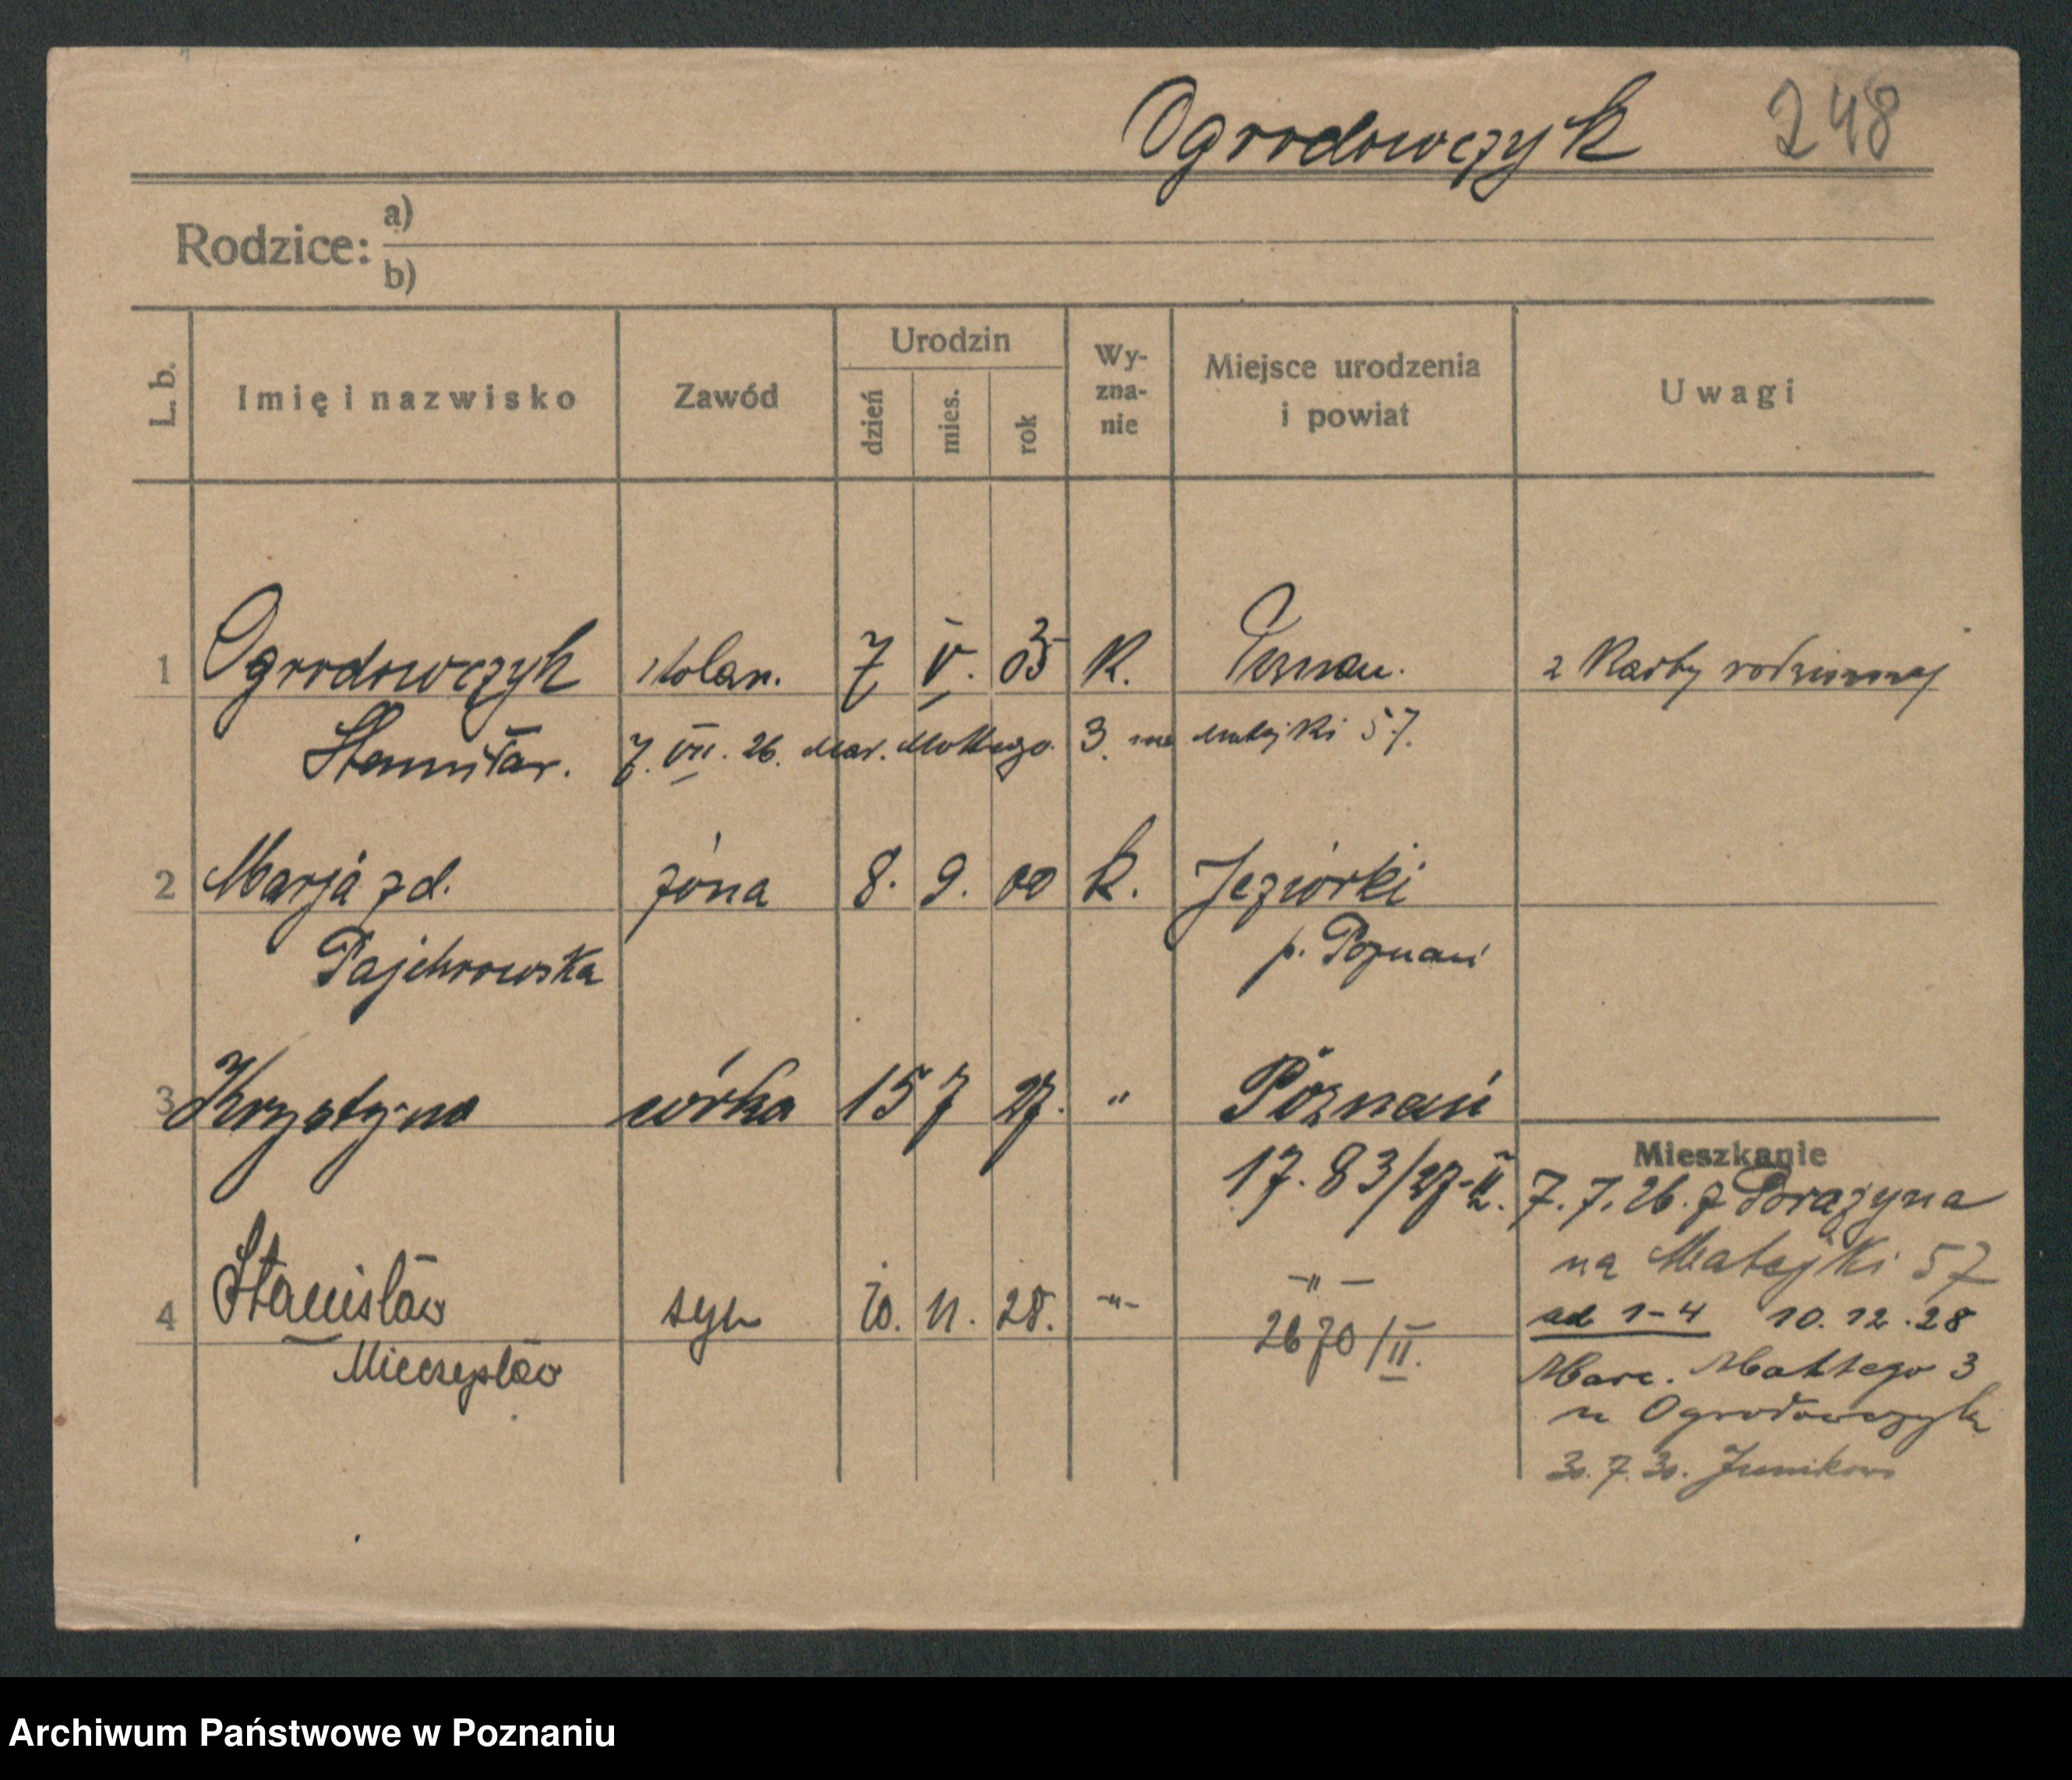 Ogrodowczyk 248
Rodzice: a)
b)
L. b. Imię i nazwisko Zawód Urodzin dzień mies. rok Wy-zna-nie Miejsce urodzenia i powiat Uwagi
1 Ogrodowczyk stolarz. 7 V. 05 K. Poznań. z Karty rodzinnej
Stanisław. 7. VII. 26. Mar. Mottego 3. na Matejki 57.
2 Marja z d. żóna 8. 9. 00 K. Jeziórki
Pajchrowska p. Poznań
3 Krystyna córka 15 7 27. " Poznań
Mieszkanie
17.83/27-II. 7.7.26. z Porażyna
na Matejki 57
4 Stanisław syn 10. 11. 28. -"- -"-
ad 1-4 10.12.28
Mieczysław 2670/II.
Marc. Mottego 3
u Ogrodowczyk
30.7.30. Junikowo
Archiwum Państwowe w Poznaniu